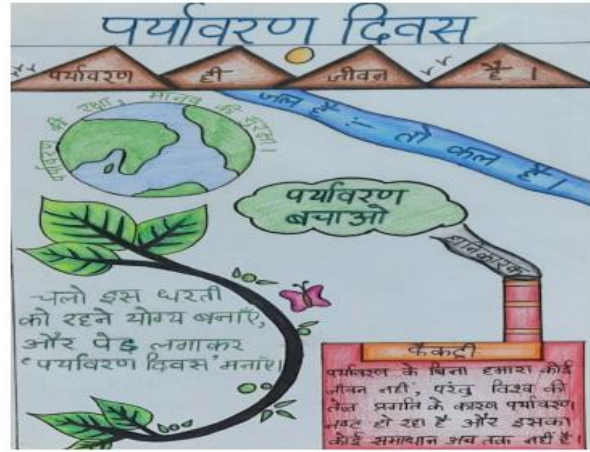 पर्यावरण दिवस
पर्यावरण ही जीवन है।
जल है :- तो कल है।
पर्यावरण की रक्षा, मानव की सुरक्षा।
पर्यावरण
बचाओ
हानिकारक
चलो इस धरती
को रहने योग्य बनाएँ,
और पेड़ लगाकर
'पर्यावरण दिवस' मनाएँ।
फैक्ट्री
पर्यावरण के बिना हमारा कोई
जीवन नहीं, परंतु विश्व की
तेज प्रगति के कारण पर्यावरण
नष्ट हो रहा है और इसका
कोई समाधान अब तक नहीं है।